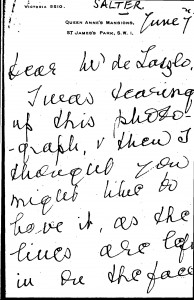 VICTORIA 2210.
SALTER
QUEEN ANNE'S MANSIONS,
ST JAMES'S PARK, S.W.1.
June 7
Dear Mr de Laszlo,
I was tearing
up this photo-
-graph, & then I
thought you
might like to
have it, as the
lines are left
in on the face